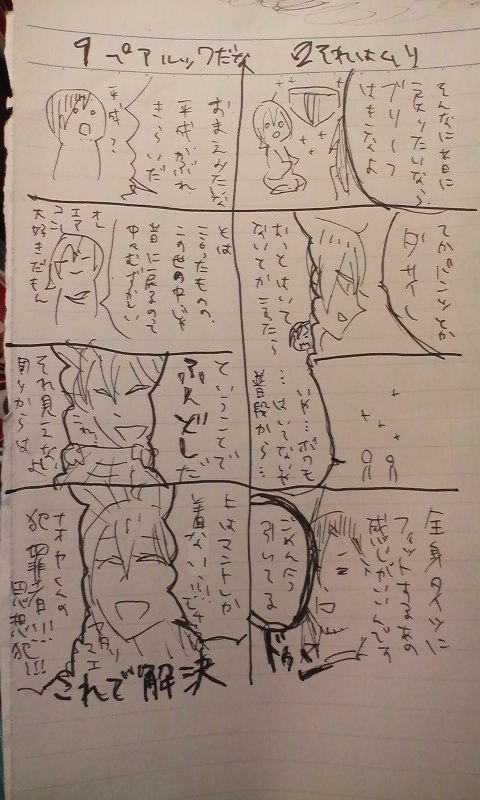 1 ペアルックだな
おまえみたいな
平成かぶれ
きらいだ
平成?
とは
言ったものの、
この世の中じゃ
昔に戻るのって
中々むずかしい
オレ
エア
コン
大好きだもん
ていうことで
ふんどしだ
それ見えないよ
周りからは
上はマントしか
着ない!!!です
ナオヤくんの
犯罪者!!!
思想犯!!!
これで解決
2 それはムリ
そんなに昔に
戻りたいなら、
ブリーフ
はきなよ
てかパンツとか
ダサイし
おいとはいて
ないとか言うたら
いや…ボクも
…はいてないが
普段から…
全身タイツに
フィットするあの
感じがいいんです
ごめん今
引いてる